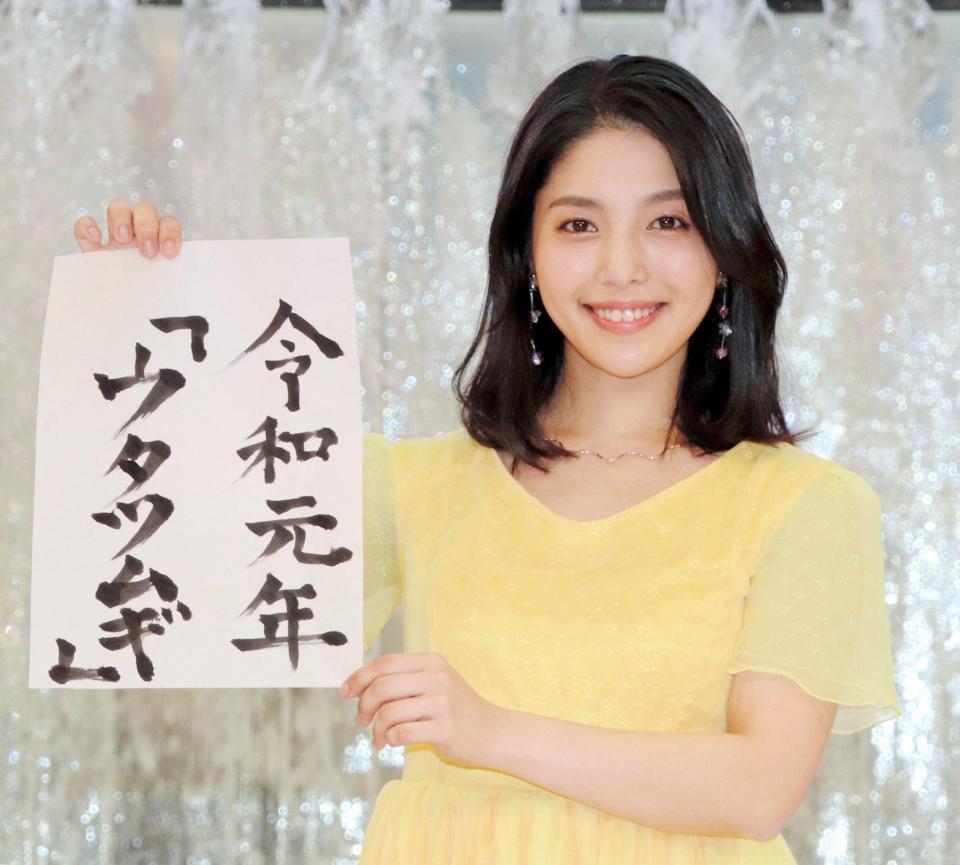 令和元年
「山タツムギ」